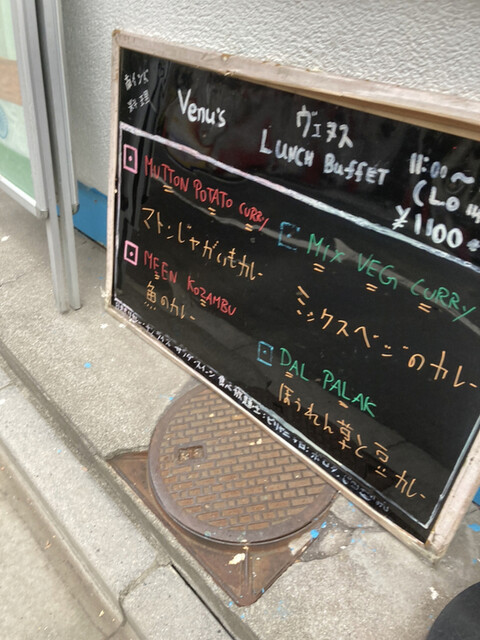 南インド
料理
Venu's
ヴェヌス
LUNCH BUFFET
11:00~
(LO
¥1100
MUTTON POTATO CURRY
マトンじゃがいもカレー
MEEN KOZAMBU
魚のカレー
MIX VEG CURRY
ミックスベジのカレー
DAL PALAK
ほうれん草と豆カレー